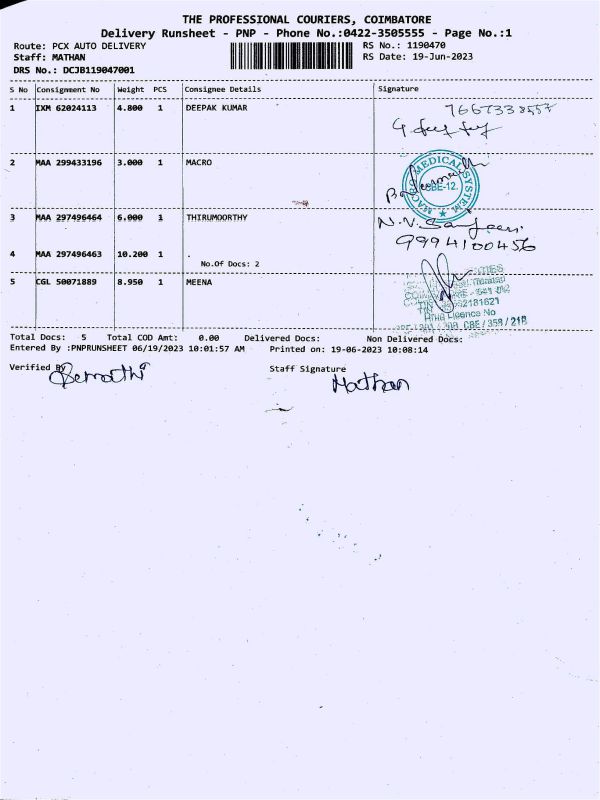 THE PROFESSIONAL COURIERS, COIMBATORE
Delivery Runsheet - PNP - Phone No.:0422-3505555 - Page No.:1
Route: PCX AUTO DELIVERY RS No.: 1190470
Staff: MATHAN RS Date: 19-Jun-2023
DRS No.: DCJB119047001
S No Consignment No Weight PCS Consignee Details Signature
1 IXM 62024113 4.800 1 DEEPAK KUMAR
2 MAA 299433196 3.000 1 MACRO
MEDICAL SYSTEM
CBE-12.
3 MAA 297496464 6.000 1 THIRUMOORTHY
9994100456
4 MAA 297496463 10.200 1 .
No.Of Docs: 2
5 CGL 50071889 8.950 1 MEENA
Licence No
CBE / 359 / 21B
Total Docs: 5 Total COD Amt: 0.00 Delivered Docs: Non Delivered Docs:
Entered By :PNPRUNSHEET 06/19/2023 10:01:57 AM Printed on: 19-06-2023 10:08:14
Verified By Staff Signature
Mathan